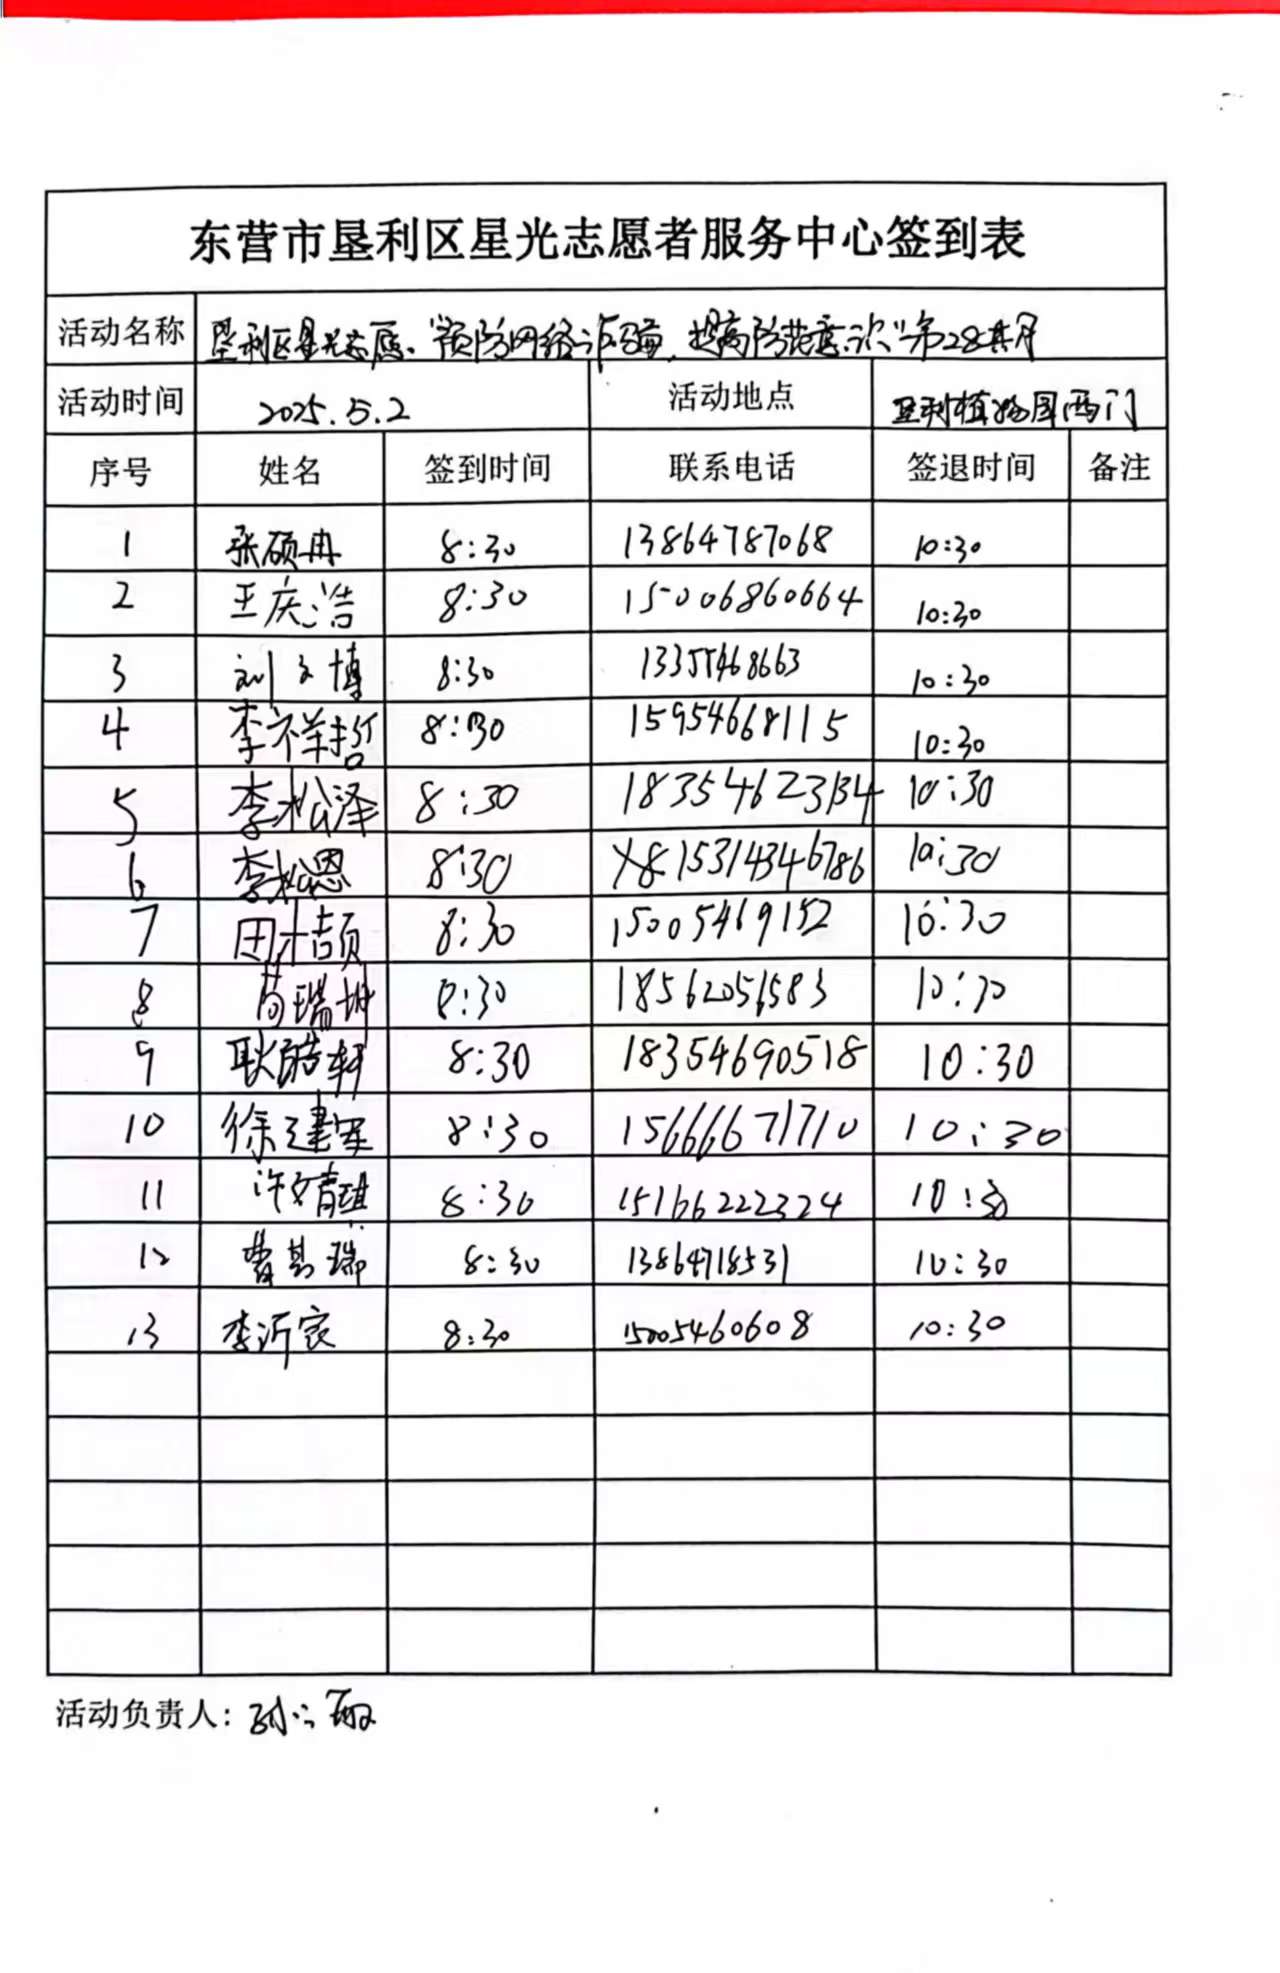 东营市垦利区星光志愿者服务中心签到表
活动名称 垦利区星光志愿."预防网络诈骗,提高防范意识"第28期
活动时间 2025.5.2 活动地点 垦利植物园西门
序号 姓名 签到时间 联系电话 签退时间 备注
1 张硕冉 8:30 13864787068 10:30
2 王庆浩 8:30 15006860664 10:30
3 刘文博 8:30 13355468663 10:30
4 李祥哲 8:30 15954668115 10:30
5 李松泽 8:30 18354623134 10:30
6 李松恩 8:30 15314346786 10:30
7 田桔硕 8:30 15005469152 10:30
8 瑞 8:30 18562056583 10:30
9 耿皓轩 8:30 18354690518 10:30
10 徐建军 8:30 15666671710 10:30
11 许文靖琪 8:30 15166222324 10:30
12 曹其瑞 8:30 13864718531 10:30
13 李沂宸 8:30 15005460608 10:30
活动负责人: